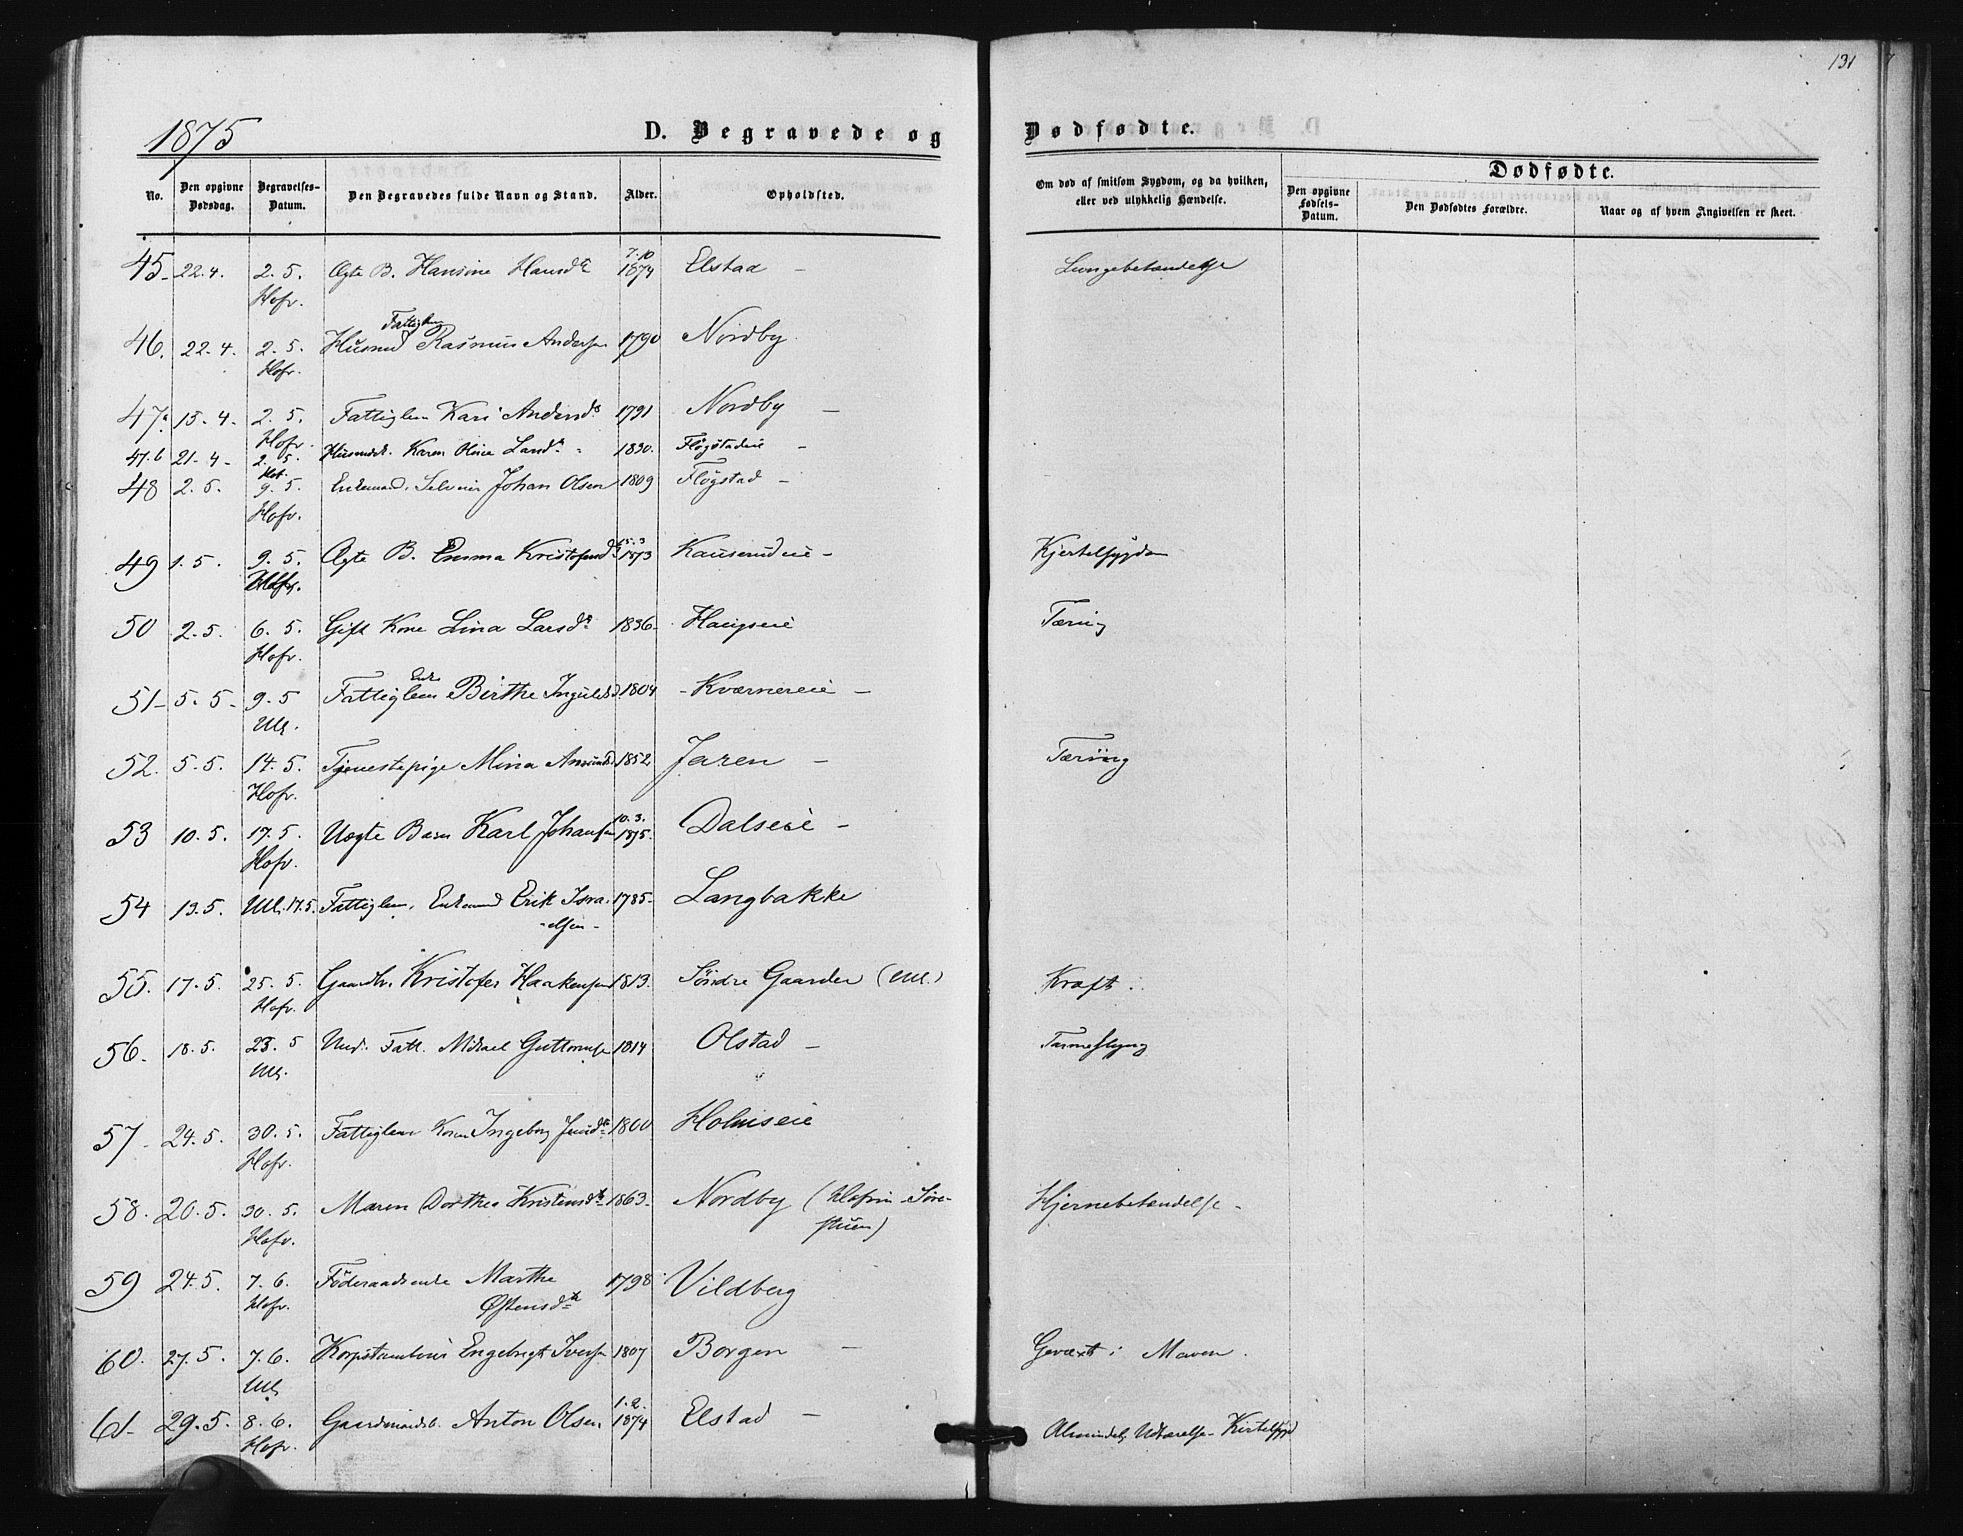 131
1875
D. Begravede og
Dødfødte.
No.
Den opgivne Dødsdag.
Begravelses-Datum.
Den Begravedes fulde Navn og Stand.
Alder.
Opholdsted.
Om død af smitsom Sygdom, og da hvilken, eller ved ulykkelig Hændelse.
Dødfødte.
Den opgivne Fødsels-Datum.
Den Dødfødtes Forældre.
Naar og af hvem Angivelsen er skeet.
45- 22.4. 2.5. Hofv. Ægte B. Hansine Hansd. 7.10 1874 Elstad - Lungebetændelse
46. 22.4. 2.5. Hofv. Husmd Fattiglem Rasmus Andersen 1790 Nordby
47a 15.4. 2.5. Hofv. Fattiglem Kari Andersd. 1791 Nordby -
47.b 21.4- 2.5. Karen Oline Larsd. 1830. Fløgstadeie -
48 2.5. 9.5. Hofv. Enkemand, Selveier Johan Olsen 1809 Fløgstad -
49 1.5. 9.5. Ægte B. Emma Kristofersd. 1873 Kauserudeie - Kjertelsygdom
50 2.5. 6.5. Hofv. Gift Kone Lina Larsd. 1836- Haugseie Tæring
51- 5.5- 9.5 Ull. Fattiglem Enke Birthe 1804 - Kværnereie -
52. 5.5. 14.5. Hofv. Tjenestepige Mina Amunds. 1852 Jaren - Tæring
53 10.5. 17.5. Hofv. Uægte Barn Karl Johansen 10.3. 1875. Dalseie -
54 13.5. Ull. 17.5. Fattiglem, Enkemand Erik Isra-
elsen - 1785- Langbakke
55. 17.5. 25.5. Hofv. Gaardbr. Kristofer Haakensen 1813. Søndre Gaarder (Ull.) Kræft
56- 18.5. 23.5 Ull. Fatt. Mikael Guttormsen 1814 Olstad - Tarmeslyng
57- 24.5. 30.5. Hofv. Fattiglem Kone Ingeborg Jensd. 1800 Holmseie
58. 20.5. 30.5. Hofv. Maren Dorthea Kristensd. 1863- Nordby (Hofvin Søre-
stuen) Hjernebetændelse -
59 24.5. 7.6. Hofv. Føderaadsenke Marthe
Østensd. 1798 Vildberg
60. 27.5. 7.6. Ull. Engebregt Iversen 1807 Borgen - Gevæxt i Maven.
61- 29.5. 8.6. Hofv. Gaardmandsb. Anton Olsen 1.2. 1874 Elstad - Almindelig Udtærelse - Kirtelsygd